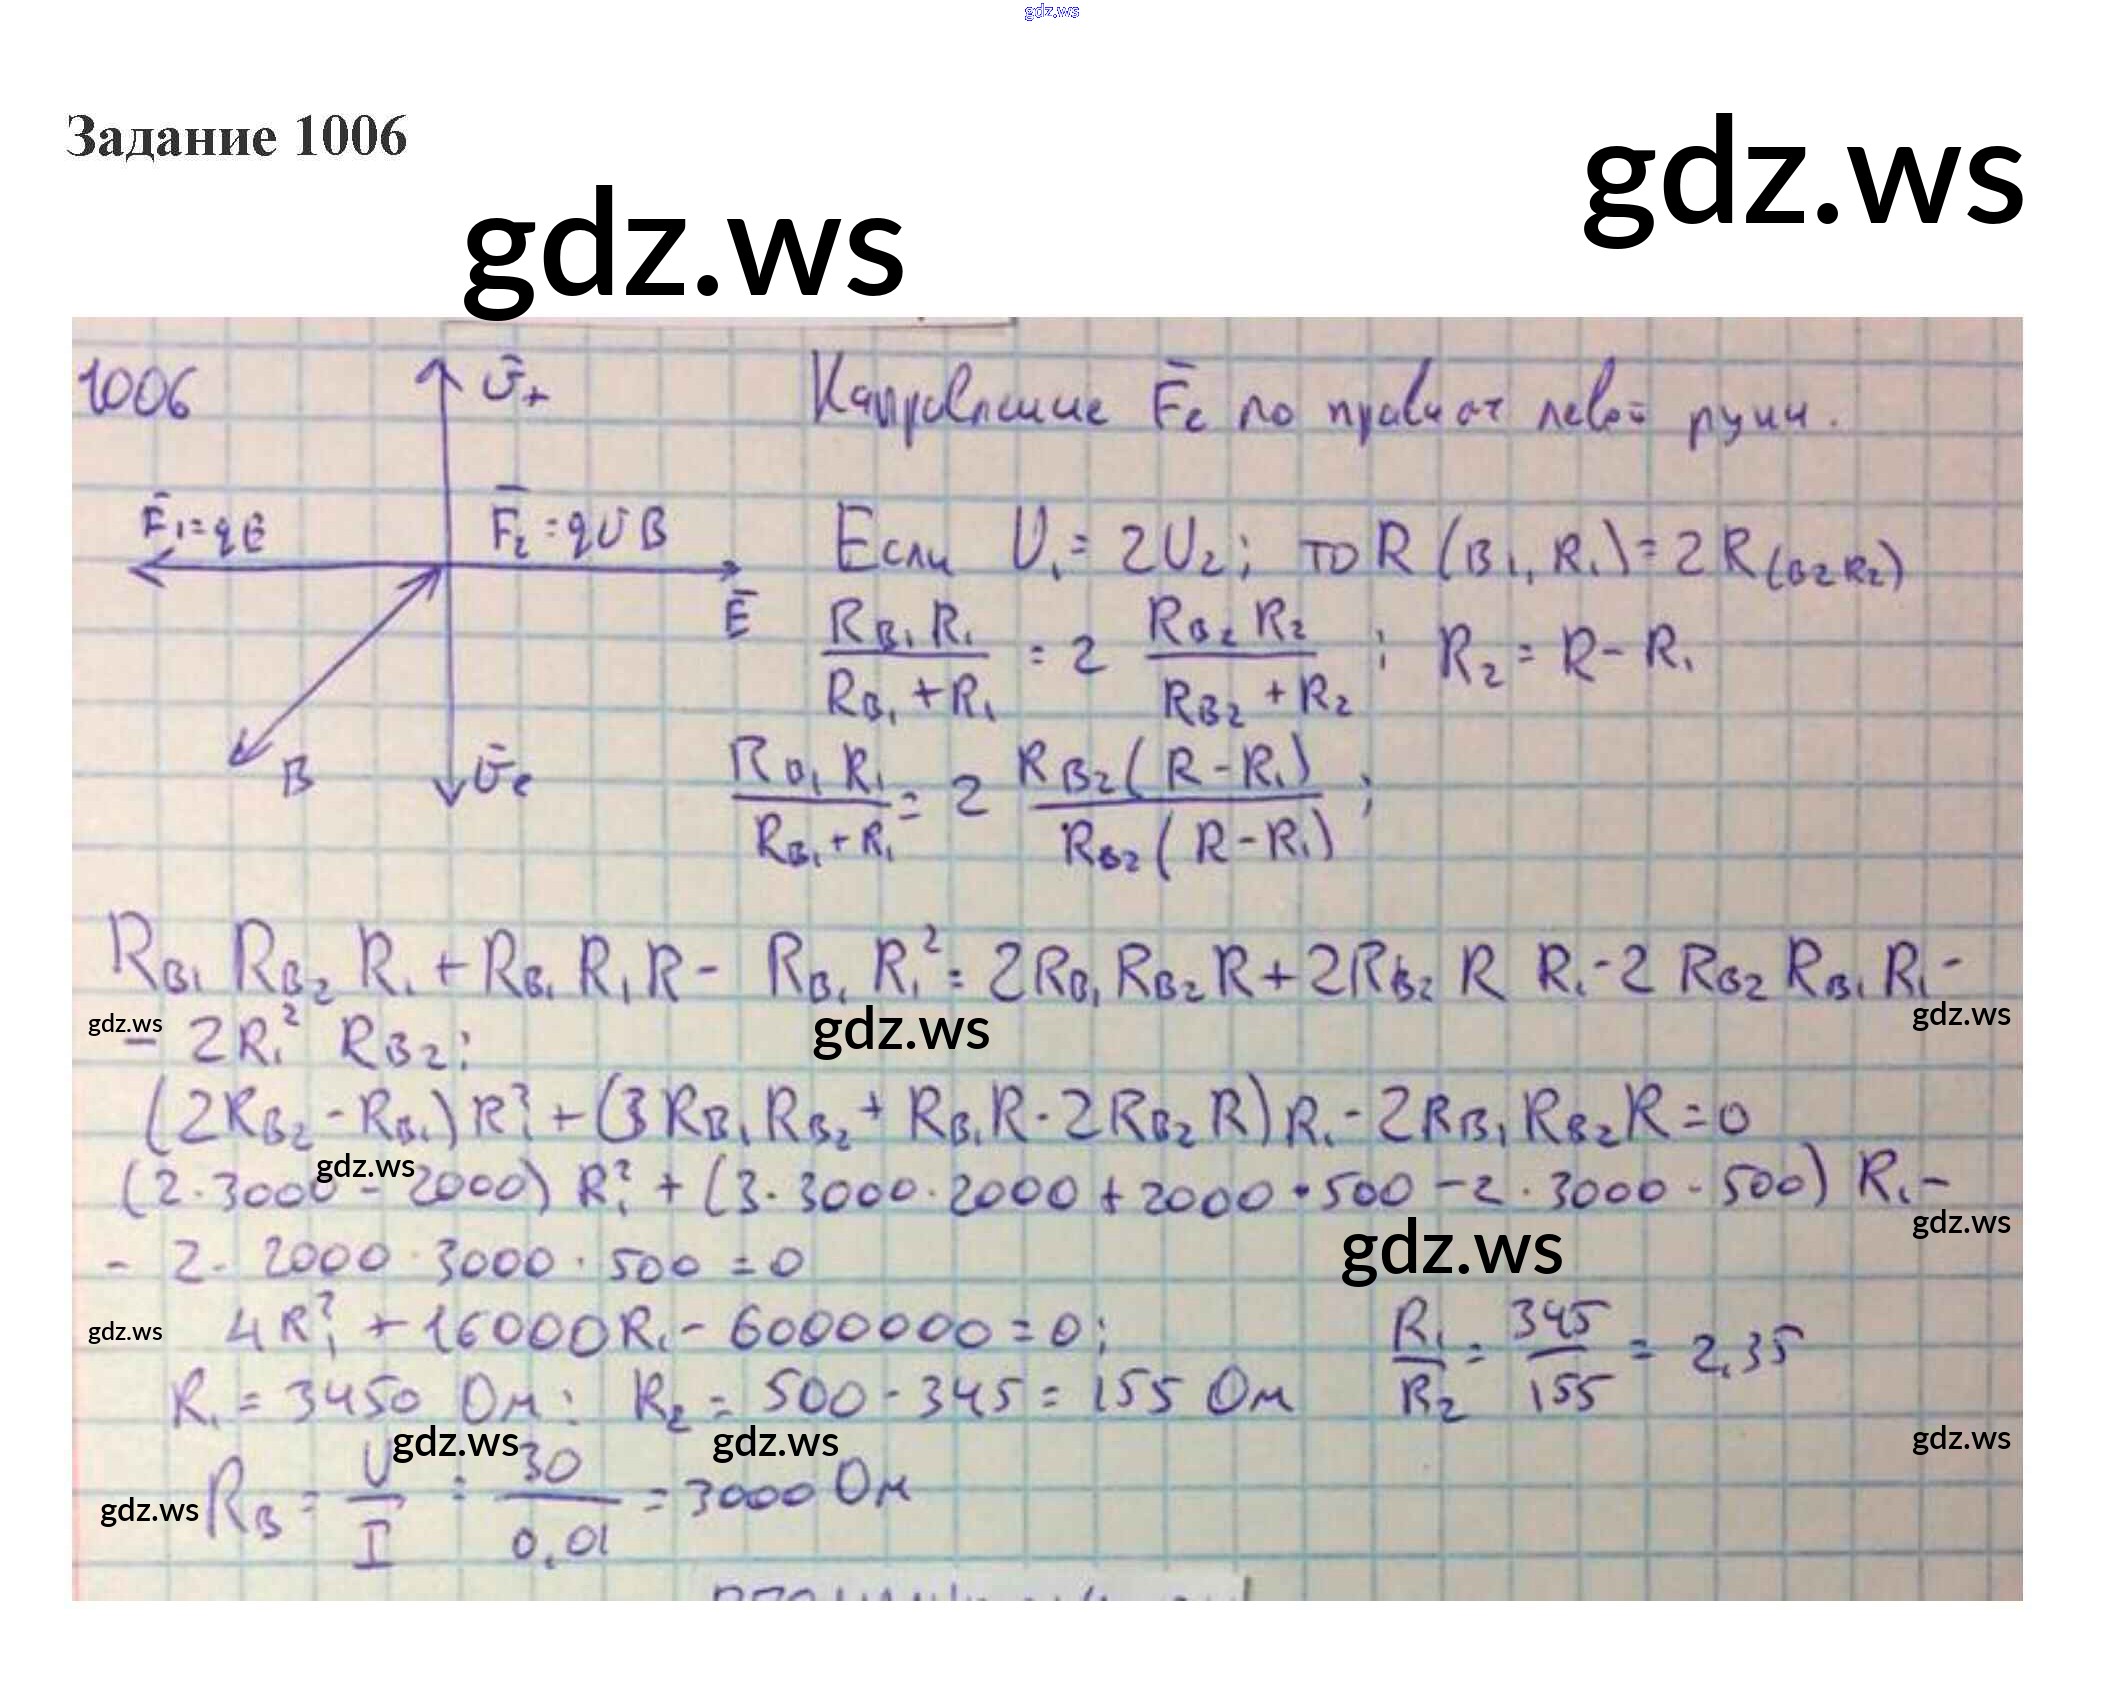 gdz.ws
Задание 1006
gdz.ws
gdz.ws
1006
ῡ₊
Направление F̄e по правилам левой руки.
F̄₁=qE
F̄₂=qUB
Если U₁=2U₂; то R(B₁,R₁)=2R(B2R2)
Ē
RB₁R₁/RB₁+R₁ = 2 RB2R2/RB2+R2 ; R₂=R-R₁
B
ῡe
RB₁R₁/RB₁+R₁ = 2 RB2(R-R₁)/RB2(R-R₁) ;
RB₁RB2R₁+RB₁R₁R-RB₁R₁²=2RB₁RB2R+2RB2RR₁-2RB2RB₁R₁-
gdz.ws
gdz.ws
gdz.ws
-2R₁²RB2;
(2RB2-RB₁)R₁²+(3RB₁RB2+RB₁R-2RB2R)R₁-2RB₁RB2R=0
gdz.ws
(2·3000-2000)R₁²+(3·3000·2000+2000·500-2·3000·500)R₁-
gdz.ws
gdz.ws
-2·2000·3000·500=0
gdz.ws
4R₁²+16000R₁-6000000=0;
R₁/R₂=345/155=2,35
R₁=3450 Ом; R₂=500-345=155 Ом
gdz.ws
gdz.ws
gdz.ws
gdz.ws
RB=U/I=30/0.01=3000 Ом